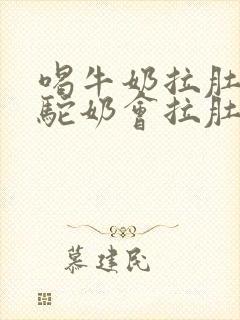 喝牛奶拉肚
駝奶會拉肚
慕建民